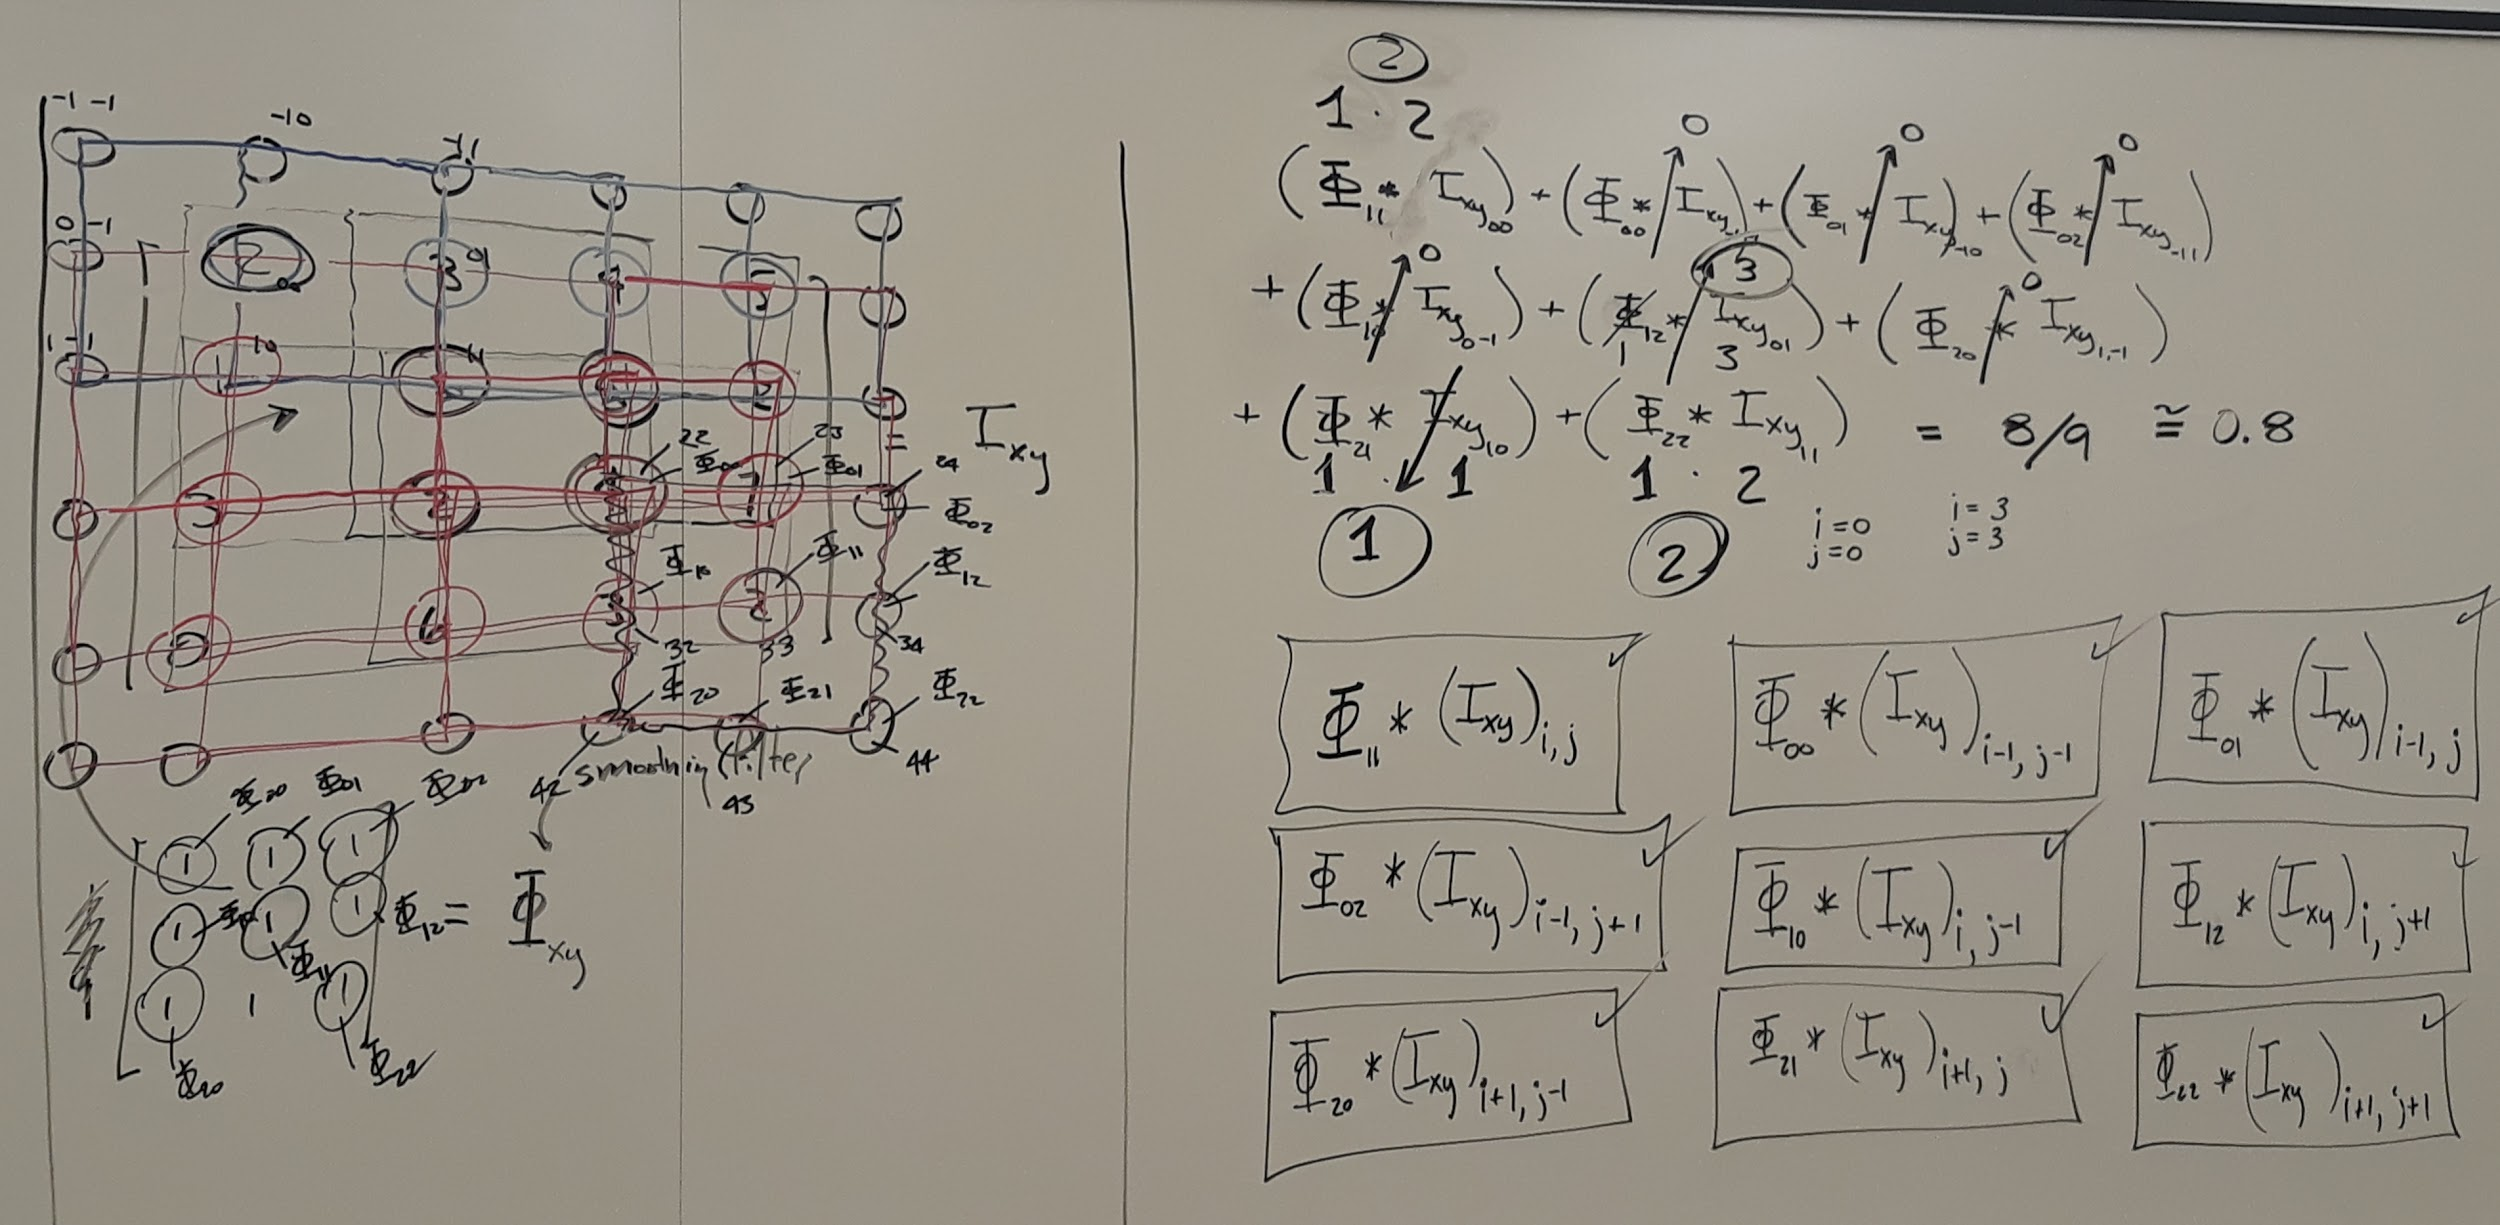 -1 -1
-10
-11
0 -1
2
3
01
4
5
1 -1
1
10
11
2
= I_xy
22
Φ_00
23
Φ_01
24
3
2
1
Φ_02
Φ_10
Φ_11
Φ_12
6
3
2
32
33
34
Φ_20
Φ_21
Φ_22
42
smoothing filter
43
44
Φ_01
Φ_02
1 1 1
1 1 1
Φ_12 = Φ_xy
Φ_11
1 1 1
Φ_20
Φ_22
2
1 · 2
0 0 0
(Φ_11 * I_xy_00) + (Φ_00 * I_xy_-1-1) + (Φ_01 * I_xy_-10) + (Φ_02 * I_xy_-11)
0 3 0
+ (Φ_10 * I_xy_0-1) + (Φ_12 * I_xy_01) + (Φ_20 * I_xy_1,-1)
1 3
+ (Φ_21 * I_xy_10) + (Φ_22 * I_xy_11) = 8/9 ≅ 0.8
1 · 1 1 · 2
1 2
i=0 i=3
j=0 j=3
Φ_11 * (I_xy)_i,j
Φ_00 * (I_xy)_i-1,j-1
Φ_01 * (I_xy)_i-1,j
Φ_02 * (I_xy)_i-1,j+1
Φ_10 * (I_xy)_i,j-1
Φ_12 * (I_xy)_i,j+1
Φ_20 * (I_xy)_i+1,j-1
Φ_21 * (I_xy)_i+1,j
Φ_22 * (I_xy)_i+1,j+1